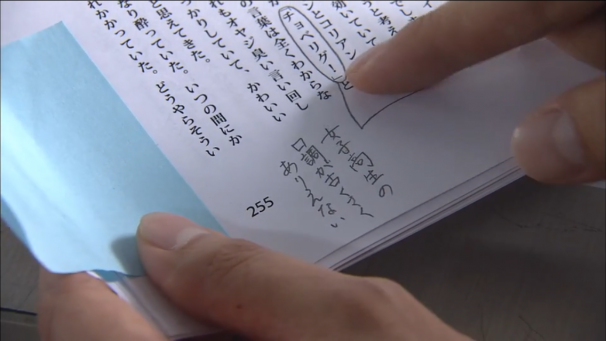 考え
効いていて
ンとコリアン
チョベリグーと
の言葉は全くわからな
オヤジ臭い言い回し
っかりしていて、かわいい
と思えてきた。いつの間にか
なり酔っていた。どうやらそうい
れかかっていた。
女子高生の
口調が古くさく
ありえない
255